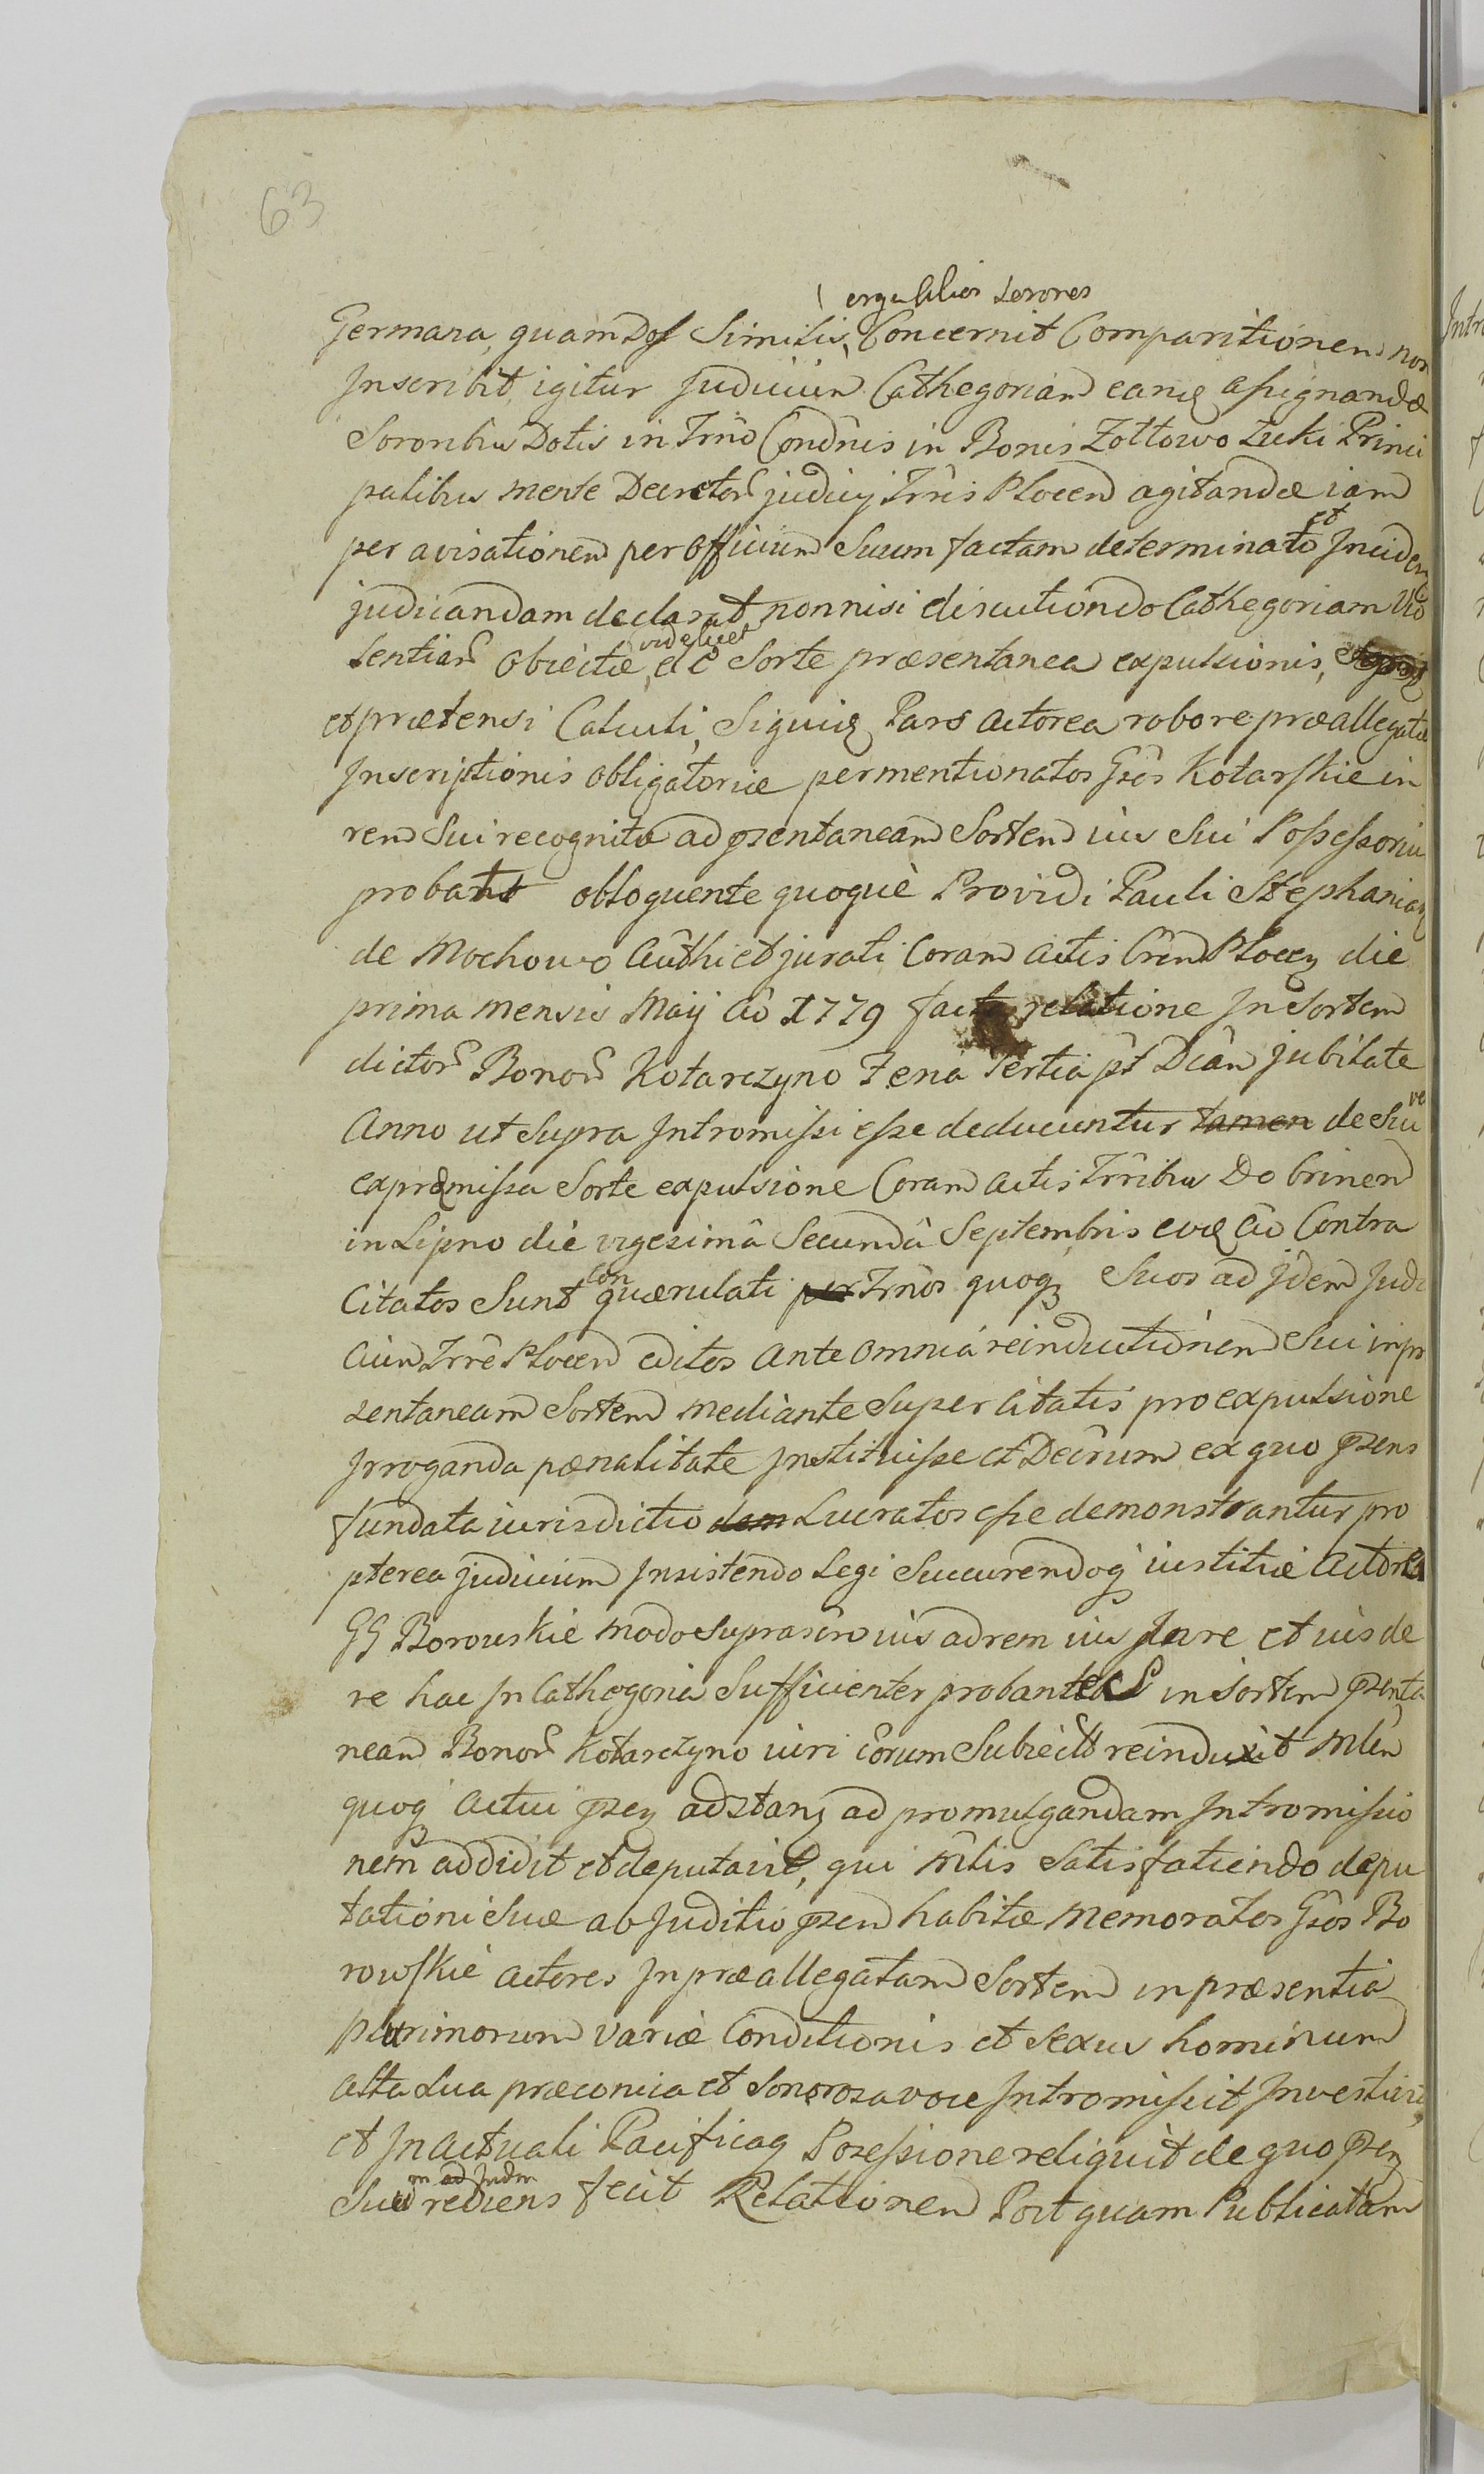 63
erga filios Sorores
Germana, quam Dos Similis, Concernit Comparitionem non
Inscribit, igitur Judicium Cathegoriam eamq assignandæ
Sororibus Dotis in Trno Condnis in Bonis Zołtowo Łuki Princi
palibus mente Decretor judicij Trris Plocen agitandæ iam
per avisationem per Officium Suum factam determinato et Inciden
judicandam declarat nonnisi discutiendo Cathegoriam Vio
lentiar Obiectæ, videlicet de Sorte præsentanea expulsionis,
et prætensi Calculi, Siquid Pars actorea robore præallegatæ
Inscriptionis obligatoriæ per mentionatos Gsos Kotarskie in
rem Sui recognita ad psentaneam Sortem ius Sui Possessoriu
probant obloquente quoquè Providi Pauli Stephaniak
de Mochowo Authci et jurati Coram actis Cren Plocen die
prima mensis Maij Ao 1779 facta relatione In Sortem
dictor Bonor Kotarczyno Fena Tertia pt Dcan jubilate
Anno ut Supra Intromissi esse deducuntur tamen de Su ve
ex præmissa Sorte expulsione Coram actis Trribus Dobrinen
in Lipno die vigesimâ Secundâ Septembris eoq Ao Contra
Citatos Sunt con quærulati per Trnos quoq Suos ad Idem Judi
cium Trre Plocen editos ante omnia reinductionem Sui in præ
zentaneam Sortem mediante Super citatis pro expulsione
Irroganda pænalitate Instituisse et Decrum ex quo psens
fundata iurisdictio dem Lucratos esse demonstrantur pro
pterea judicium Insistendo Legi Succurendoq iustitiæ actorea
GG Borowskie modo Suprascro ius ad rem ius Jure et ius de
re hac In Cathegoria Sufficienter probantes in Sortem psenta
neam Bonor Kotarczyno iuri eorum Subiectt reinduxit Mlem
quoq actui psen adstan ad promulgandam Intromissio
nem addidit et deputavit, qui Mlis Satisfatiendo depu
tationi Suæ ab Juditio psen habitæ memoratos Gsos Bo
rowskie actores In præallegatam Sortem in præsentia
plurimorum variæ Conditionis et Sexus hominum
alta Sua præconica et Sonorosa voce Intromissit Investivit,
et In actuali Pacificaq Posessione reliquit de quo psen
m ad Judm
Suam rediens fecit Relationem Post quam Publicatam